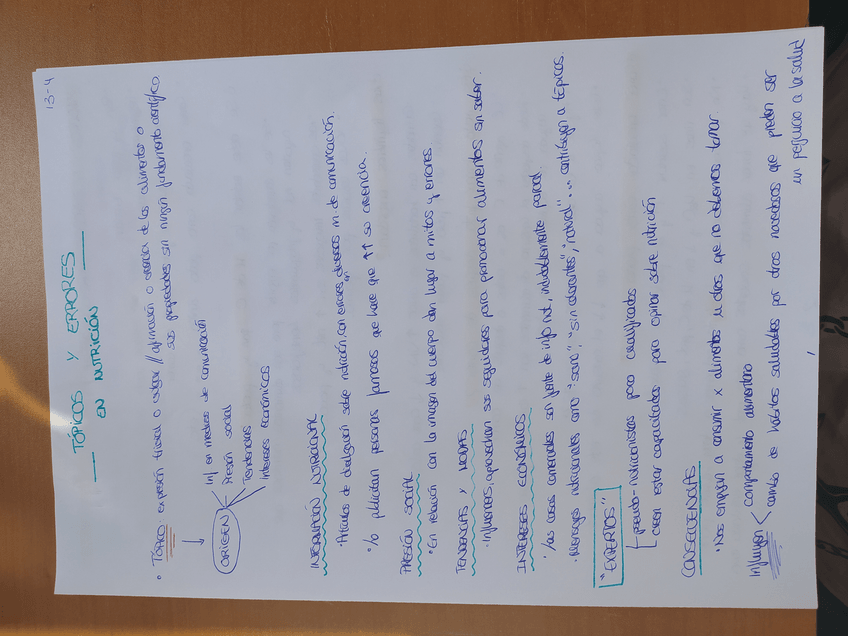 13-4
TÓPICOS Y ERRORES
EN NUTRICIÓN
• TÓPICO: expresión trivial o vulgar // afirmación o creencia de los alimentos o
sus propiedades sin ningún fundamento científico
ORIGEN
Inf en medios de comunicación
Presión social
Tendencias
Intereses económicos
INFORMACIÓN NUTRICIONAL
• Artículos de divulgación sobre nutrición con errores diversos m de comunicación.
• Lo publicitan personas famosas que hace que ↑↑ su creencia.
PRESIÓN SOCIAL
• En relación con la imagen del cuerpo dan lugar a mitos y errores.
TENDENCIAS Y MODAS
• Influencers, aprovechan sus seguidores para promocionar alimentos sin saber.
INTERESES ECONÓMICOS
• Las casas comerciales son fuente de info nut, indudablemente parcial.
• Mensajes nutricionales como "sano", "sin colorantes", "natural"... contribuyen a tópicos.
"EXPERTOS"
pseudo-nutricionistas poco cualificados
creen estar capacitados para opinar sobre nutrición
CONSECUENCIAS
• Nos empujan a consumir x alimentos u otros que no debemos tomar
Influyen < comportamiento alimentario
cambio de hábitos saludables por otros novedosos que pueden ser
un perjuicio a la salud